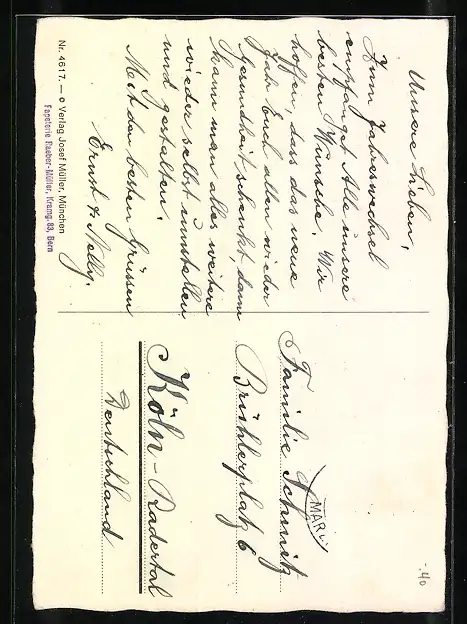 Unsere Lieben,
Zum Jahreswechsel
empfanget Alle unsere
besten Wünsche. Wir
hoffen, dass das neue
Jahr Euch allen wieder
Gesundheit schenkt, dann
kann man alles weitere
wieder selbst einstellen
und gestalten.
Mit den besten Grüssen
Ernst & Nelly.
Nr. 4617. — © Verlag Josef Müller, München
Papeterie Raeber-Müller, Kramg. 83, Bern
Familie Schmitz
MARL
Brühlerplatz 6
Köln-Radertal
Deutschland
-.40